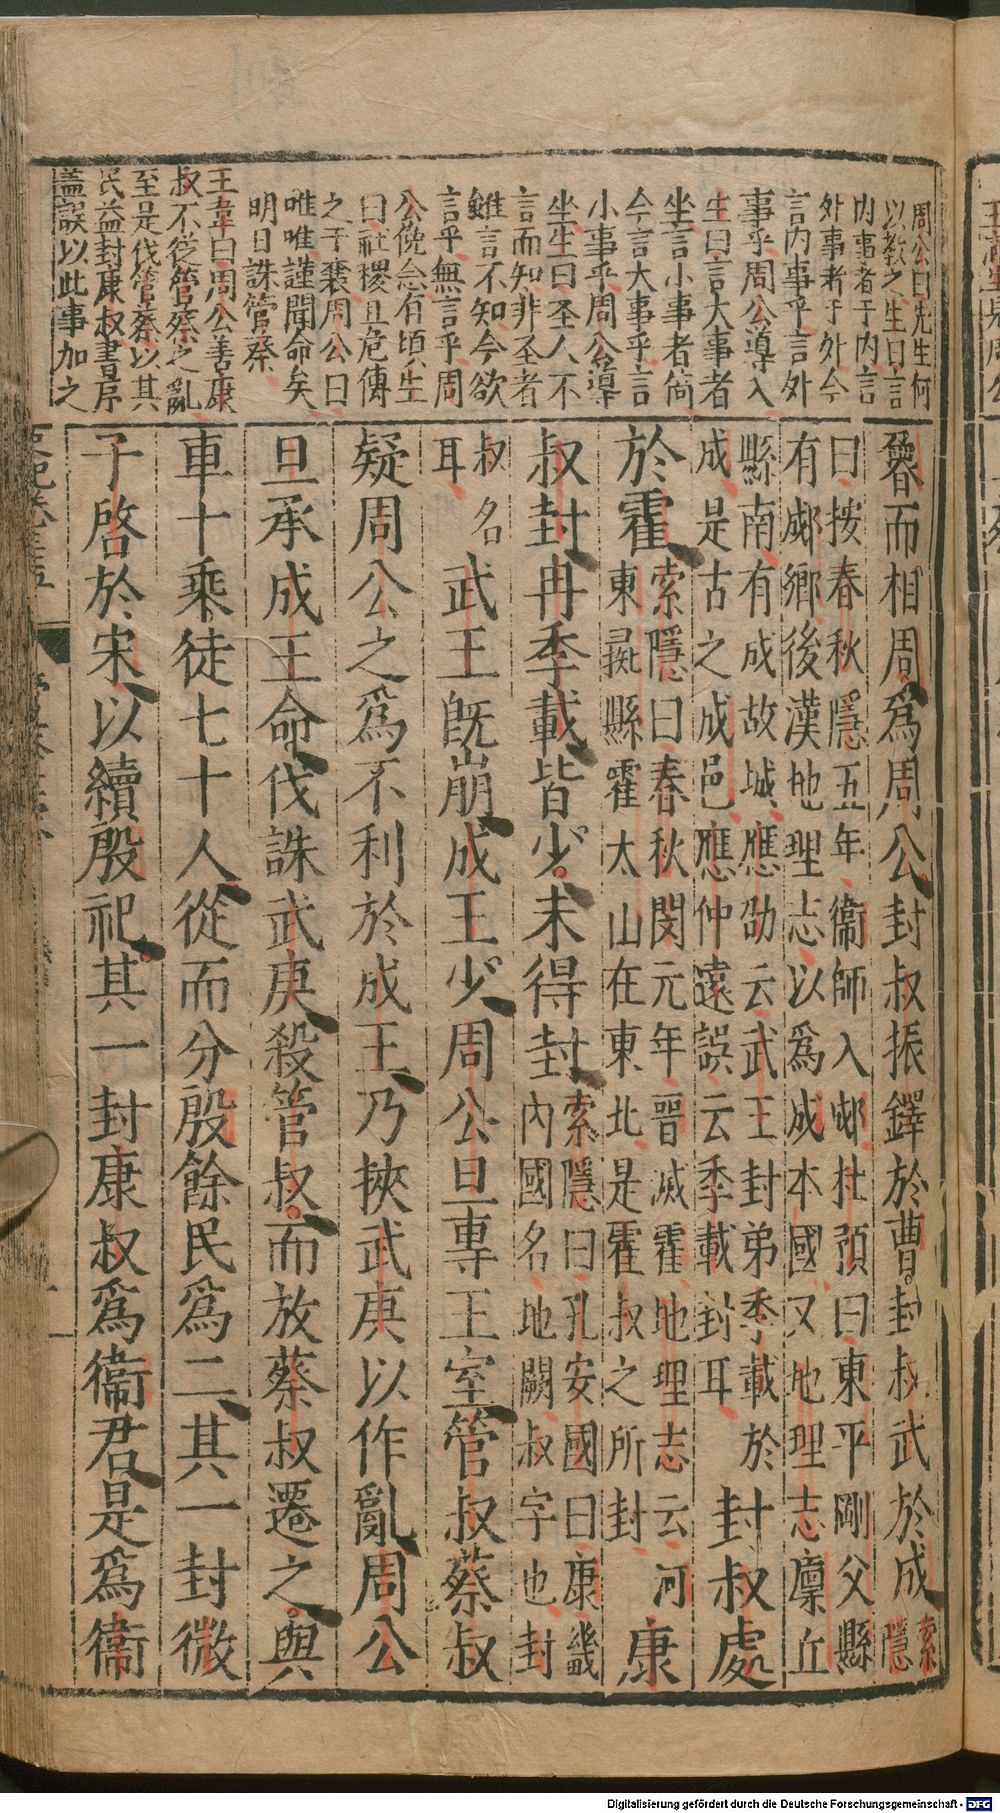 周公曰先生何
以教之生曰言
内事者于内言
外事者于外今
言内事乎言外
事乎周公導入
生曰言大事者
坐言小事者倚
今言大事乎言
小事乎周公導
坐生曰圣人不
言而知非圣者
雖言不知今欲
言乎無言乎周
公俛念有頃生
曰社稷且危傅
之于裏周公曰
唯唯謹聞命矣
明日誅管蔡
王韋曰周公善康
叔不從管蔡之亂
至是伐管蔡以其
民益封康叔書序
盖誤以此事加之
爂而相周爲周公封叔振鐸於曹封叔武於成索
隱
曰按春秋隱五年衞師入郕杜預曰東平剛父縣
有郕鄉後漢地理志以爲成本國又地理志廩丘
縣南有成故城應劭云武王封弟季載於
成是古之成邑應仲遠誤云季載封耳
封叔處
於霍
索隱曰春秋閔元年晋滅霍地理志云河
東彘縣霍太山在東北是霍叔之所封
康
叔封冉季載皆少未得封
索隱曰孔安國曰康畿
內國名地闕叔字也封
叔名
耳
武王旣崩成王少周公旦專王室管叔蔡叔
疑周公之爲不利於成王乃挾武庚以作亂周公
旦承成王命伐誅武庚殺管叔而放蔡叔遷之與
車十乘徒七十人從而分殷餘民爲二其一封微
子啓於宋以續殷祀其一封康叔爲衞君是爲衞
Digitalisierung gefördert durch die Deutsche Forschungsgemeinschaft - DFG